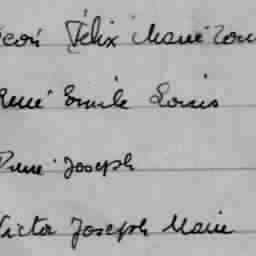 Léon Félix Marie
René Emile Louis
Joseph
Victor Joseph Marie